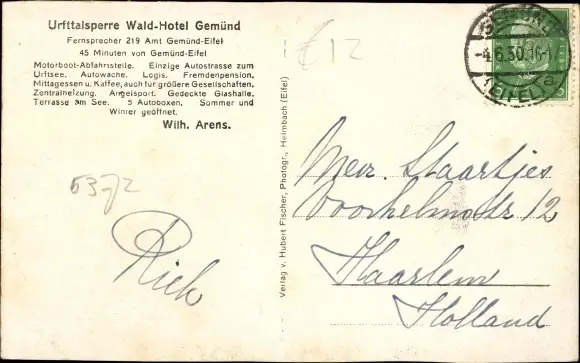 Urfttalsperre Wald-Hotel Gemünd
Fernsprecher 219 Amt Gemünd-Eifel
45 Minuten von Gemünd-Eifel
Motorboot-Abfahrtstelle. Einzige Autostrasse zum
Urftsee. Autowache. Logis. Fremdenpension.
Mittagessen u. Kaffee, auch für größere Gesellschaften.
Zentralheizung. Angelsport. Gedeckte Glashalle.
Terrasse am See. 5 Autoboxen. Sommer und
Winter geöffnet.
Wilh. Arens.
5372
Rick
Verlag v. Hubert Fischer, Photogr., Heimbach (Eifel)
12
-4.6.30.16-
(EIFEL)
Mevr. Staartjes
Voorhelmstr 12
Haarlem
Holland